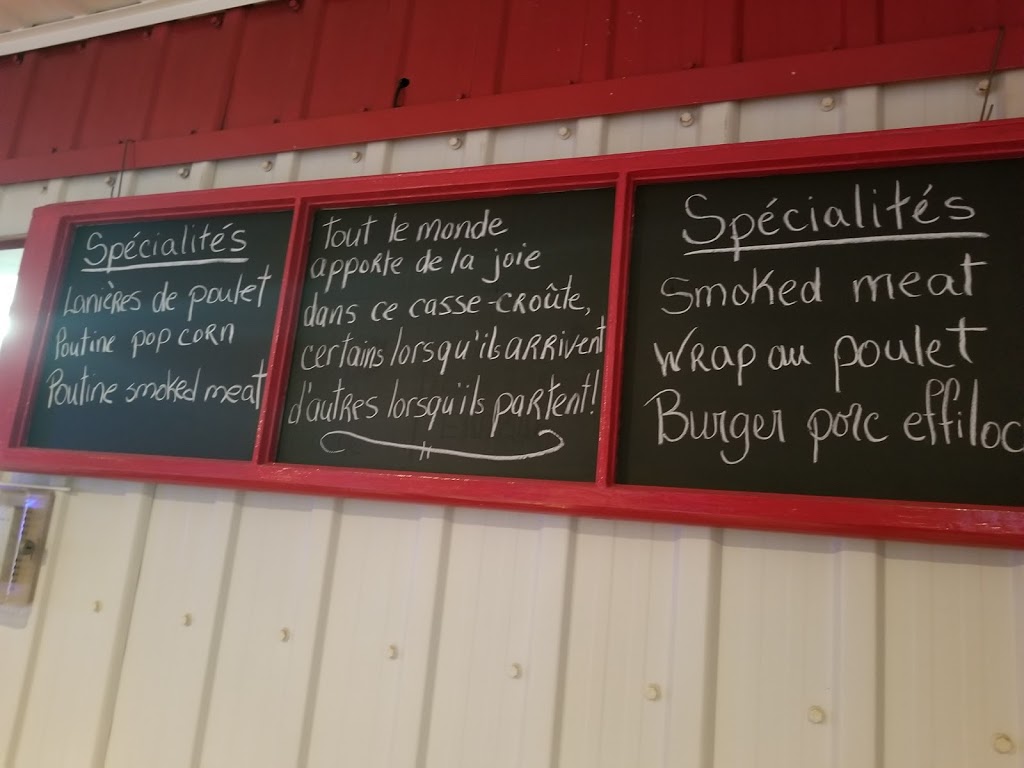 Spécialités
Lanières de poulet
Poutine pop corn
Poutine smoked meat
Tout le monde
apporte de la joie
dans ce casse-croûte,
certains lorsqu'ils arrivent
d'autres lorsqu'ils partent!
Spécialités
Smoked meat
Wrap au poulet
Burger porc effiloc